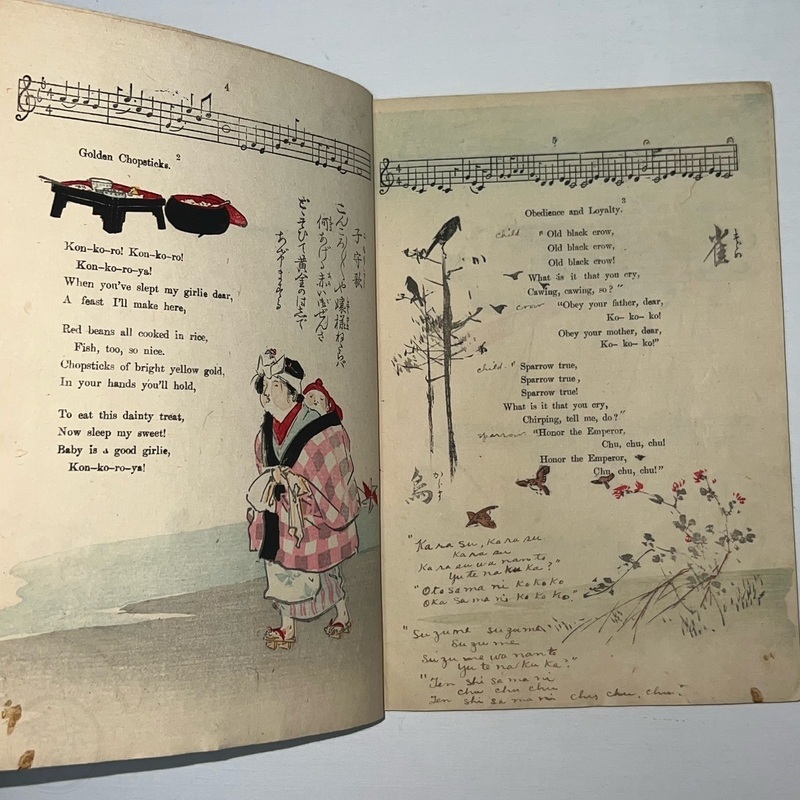 4
Golden Chopsticks. 2
Kon-ko-ro! Kon-ko-ro!
Kon-ko-ro-ya!
When you've slept my girlie dear,
A feast I'll make here,
Red beans all cooked in rice,
Fish, too, so nice.
Chopsticks of bright yellow gold,
In your hands you'll hold,
To eat this dainty treat,
Now sleep my sweet!
Baby is a good girlie,
Kon-ko-ro-ya!
子守歌
Obedience and Loyalty. 3
child "Old black crow,
Old black crow,
Old black crow!
What is it that you cry,
Cawing, cawing, so?"
crow "Obey your father, dear,
Ko- ko- ko!
Obey your mother, dear,
Ko- ko- ko!"
child. "Sparrow true,
Sparrow true,
Sparrow true!
What is it that you cry,
Chirping, tell me, do?"
sparrow "Honor the Emperor,
Chu, chu, chu!
Honor the Emperor,
Chu, chu, chu!"
雀
"Kara su, kara su
kara su
Kara su wa nan to
yu te na ku ka?"
"Oto sama ni ko ko ko
Oka sama ni ko ko ko."
"Su zu me su zu me
su zu me
Su zu me wa nan to
yu te na ku ka?"
"Ten shi sa ma ni
chu chu chu
Ten shi sa ma ni chu, chu, chu."